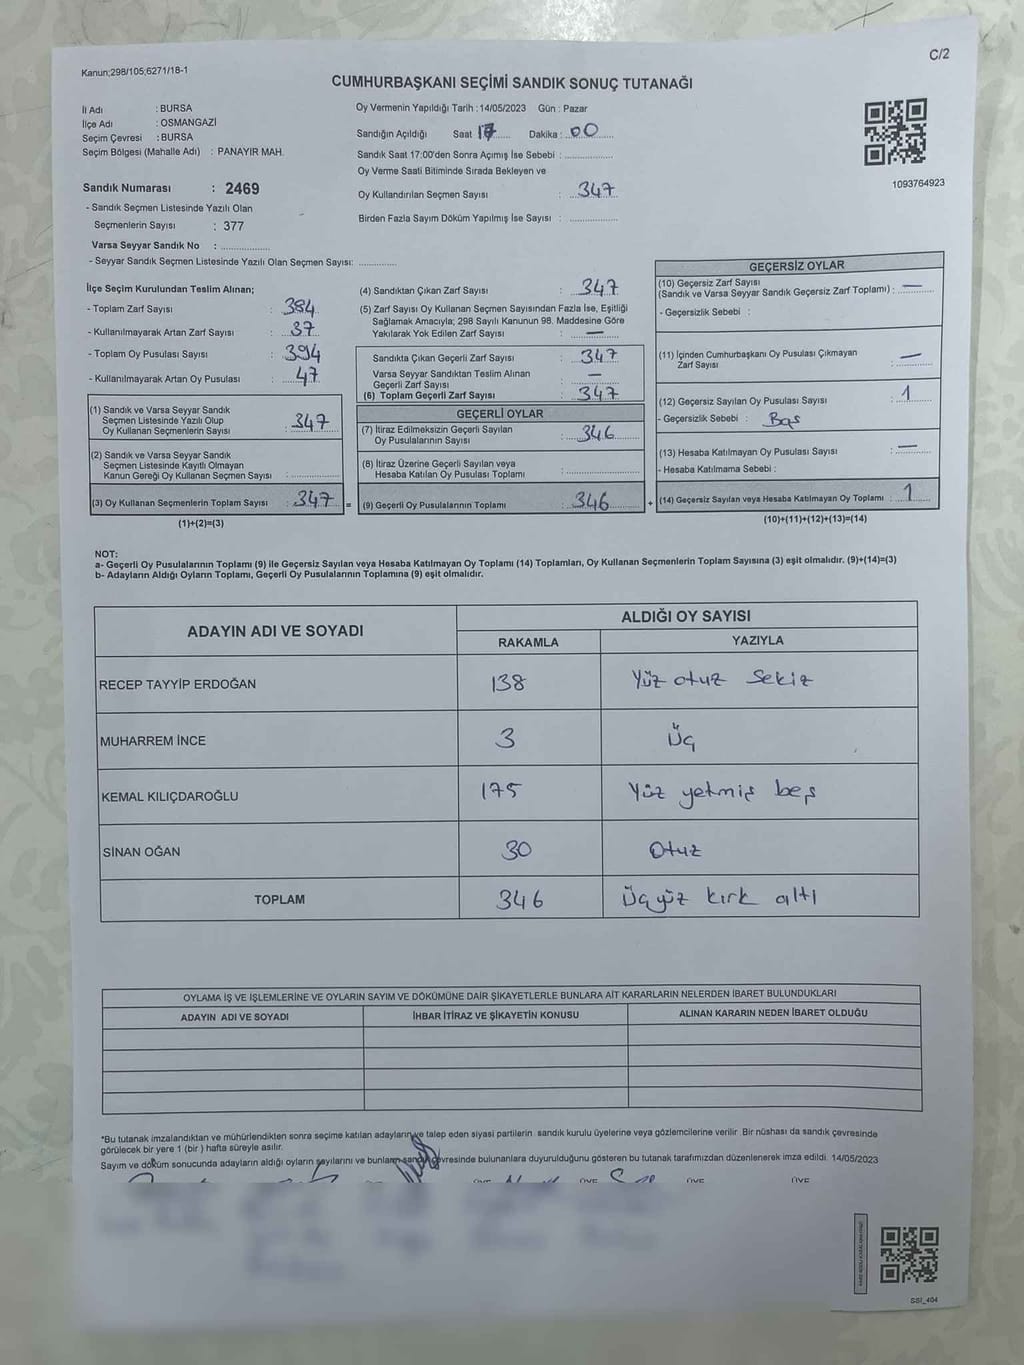 C/2
Kanun;298/105;6271/18-1
CUMHURBAŞKANI SEÇİMİ SANDIK SONUÇ TUTANAĞI
İl Adı : BURSA
İlçe Adı : OSMANGAZİ
Seçim Çevresi : BURSA
Seçim Bölgesi (Mahalle Adı) : PANAYIR MAH.
Sandık Numarası : 2469
- Sandık Seçmen Listesinde Yazılı Olan
Seçmenlerin Sayısı : 377
Varsa Seyyar Sandık No : ..................
- Seyyar Sandık Seçmen Listesinde Yazılı Olan Seçmen Sayısı: ..............
Oy Vermenin Yapıldığı Tarih : 14/05/2023 Gün : Pazar
Sandığın Açıldığı Saat 17 Dakika : 00
Sandık Saat 17:00'den Sonra Açımış İse Sebebi : ..................
Oy Verme Saati Bitiminde Sırada Bekleyen ve
Oy Kullandırılan Seçmen Sayısı : 347
Birden Fazla Sayım Döküm Yapılmış İse Sayısı : ..................
1093764923
İlçe Seçim Kurulundan Teslim Alınan;
- Toplam Zarf Sayısı : 384
- Kullanılmayarak Artan Zarf Sayısı : 37
- Toplam Oy Pusulası Sayısı : 394
- Kullanılmayarak Artan Oy Pusulası : 47
(1) Sandık ve Varsa Seyyar Sandık
Seçmen Listesinde Yazılı Olup
Oy Kullanan Seçmenlerin Sayısı : 347
(2) Sandık ve Varsa Seyyar Sandık
Seçmen Listesinde Kayıtlı Olmayan
Kanun Gereği Oy Kullanan Seçmen Sayısı : ..................
(3) Oy Kullanan Seçmenlerin Toplam Sayısı : 347 =
(1)+(2)=(3)
(4) Sandıktan Çıkan Zarf Sayısı : 347
(5) Zarf Sayısı Oy Kullanan Seçmen Sayısından Fazla İse, Eşitliği
Sağlamak Amacıyla; 298 Sayılı Kanunun 98. Maddesine Göre
Yakılarak Yok Edilen Zarf Sayısı : —
Sandıkta Çıkan Geçerli Zarf Sayısı : 347
Varsa Seyyar Sandıktan Teslim Alınan
Geçerli Zarf Sayısı : —
(6) Toplam Geçerli Zarf Sayısı : 347
GEÇERLİ OYLAR
(7) İtiraz Edilmeksizin Geçerli Sayılan
Oy Pusulalarının Sayısı : 346
(8) İtiraz Üzerine Geçerli Sayılan veya
Hesaba Katılan Oy Pusulası Toplamı : ..................
(9) Geçerli Oy Pusulalarının Toplamı : 346 +
GEÇERSİZ OYLAR
(10) Geçersiz Zarf Sayısı
(Sandık ve Varsa Seyyar Sandık Geçersiz Zarf Toplamı) : —
- Geçersizlik Sebebi :
(11) İçinden Cumhurbaşkanı Oy Pusulası Çıkmayan
Zarf Sayısı : —
(12) Geçersiz Sayılan Oy Pusulası Sayısı : 1
- Geçersizlik Sebebi : Boş
(13) Hesaba Katılmayan Oy Pusulası Sayısı : —
- Hesaba Katılmama Sebebi :
(14) Geçersiz Sayılan veya Hesaba Katılmayan Oy Toplamı : 1
(10)+(11)+(12)+(13)=(14)
NOT:
a- Geçerli Oy Pusulalarının Toplamı (9) ile Geçersiz Sayılan veya Hesaba Katılmayan Oy Toplamı (14) Toplamları, Oy Kullanan Seçmenlerin Toplam Sayısına (3) eşit olmalıdır. (9)+(14)=(3)
b- Adayların Aldığı Oyların Toplamı, Geçerli Oy Pusulalarının Toplamına (9) eşit olmalıdır.
ADAYIN ADI VE SOYADI ALDIĞI OY SAYISI
RAKAMLA YAZIYLA
RECEP TAYYİP ERDOĞAN 138 Yüz otuz sekiz
MUHARREM İNCE 3 Üç
KEMAL KILIÇDAROĞLU 175 Yüz yetmiş beş
SİNAN OĞAN 30 Otuz
TOPLAM 346 Üçyüz kırk altı
OYLAMA İŞ VE İŞLEMLERİNE VE OYLARIN SAYIM VE DÖKÜMÜNE DAİR ŞİKAYETLERLE BUNLARA AİT KARARLARIN NELERDEN İBARET BULUNDUKLARI
ADAYIN ADI VE SOYADI İHBAR İTİRAZ VE ŞİKAYETİN KONUSU ALINAN KARARIN NEDEN İBARET OLDUĞU
*Bu tutanak imzalandıktan ve mühürlendikten sonra seçime katılan adayların ve talep eden siyasi partilerin sandık kurulu üyelerine veya gözlemcilerine verilir. Bir nüshası da sandık çevresinde
görülecek bir yere 1 (bir ) hafta süreyle asılır.
Sayım ve döküm sonucunda adayların aldığı oyların sayılarını ve bunların sandık çevresinde bulunanlara duyurulduğunu gösteren bu tutanak tarafımızdan düzenlenerek imza edildi. 14/05/2023
SSI_404